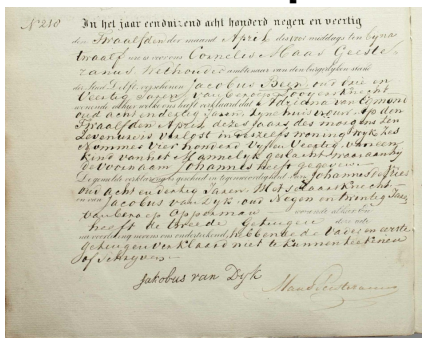 N° 210 In het jaar eendnizend acht honderd negen en veertig
den Twaalfden der maand April des voormiddags ten
twaalf ure voor ons Cornelis Maas Geeste
ranus Wethouder ambtenaar van den burgerlyken stand
der Stad Delft, verschenen Jacobus Begn oud drie en
Veertig Jaren van beroep
wonende alhier welke ons heeft verklaard dat Adriana van Egmont
oud acht en dertig Jaren zyne huisvrouw op den
Twaalfden April dezes Jaars des morgens ten
Zeven ure is verlost in derzelfs woning wyk zes
Nommer Vier honderd Vyf en Veertig van een
Kind van het Mannelyk geslacht waaraan hy
de voornaam Johannes heeft gegeven
De gemelde verklaring is geschied in tegenwoordigheid van Johannes de Vries
oud acht en dertig Jaren Metselaarsknecht
en van Jacobus van Dyk oud Negen en twintig Jaren
van beroep Oppasman wonende alhier
heeft de tweede Getuigen deze acte
na voorlezing nevens ons onderteekend, hebbende de Vader en eerste
getuigen verklaard niet te kunnen
of Schryven
Jakobus van Dyk
Maas Geesteranus